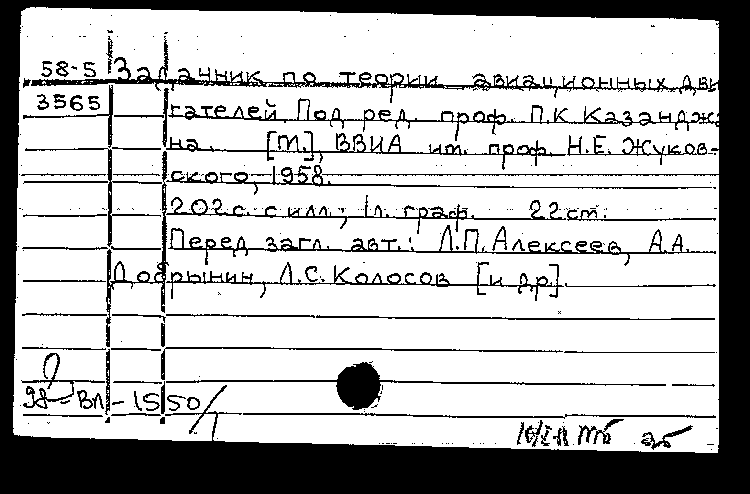 58-5 Задачник по теории авиационных дви
3565 гателей. Под ред. проф. П.К Казанджа
на. [М.], ВВИА им. проф. Н.Е. Жуков-
ского, 1958.
202с. с илл.; 1л. граф. 22см.
Перед загл. авт.: Л.П.Алексеев, А.А.
Добрынин, Л.С.Колосов [и др].
98-ВЛ-1550/1